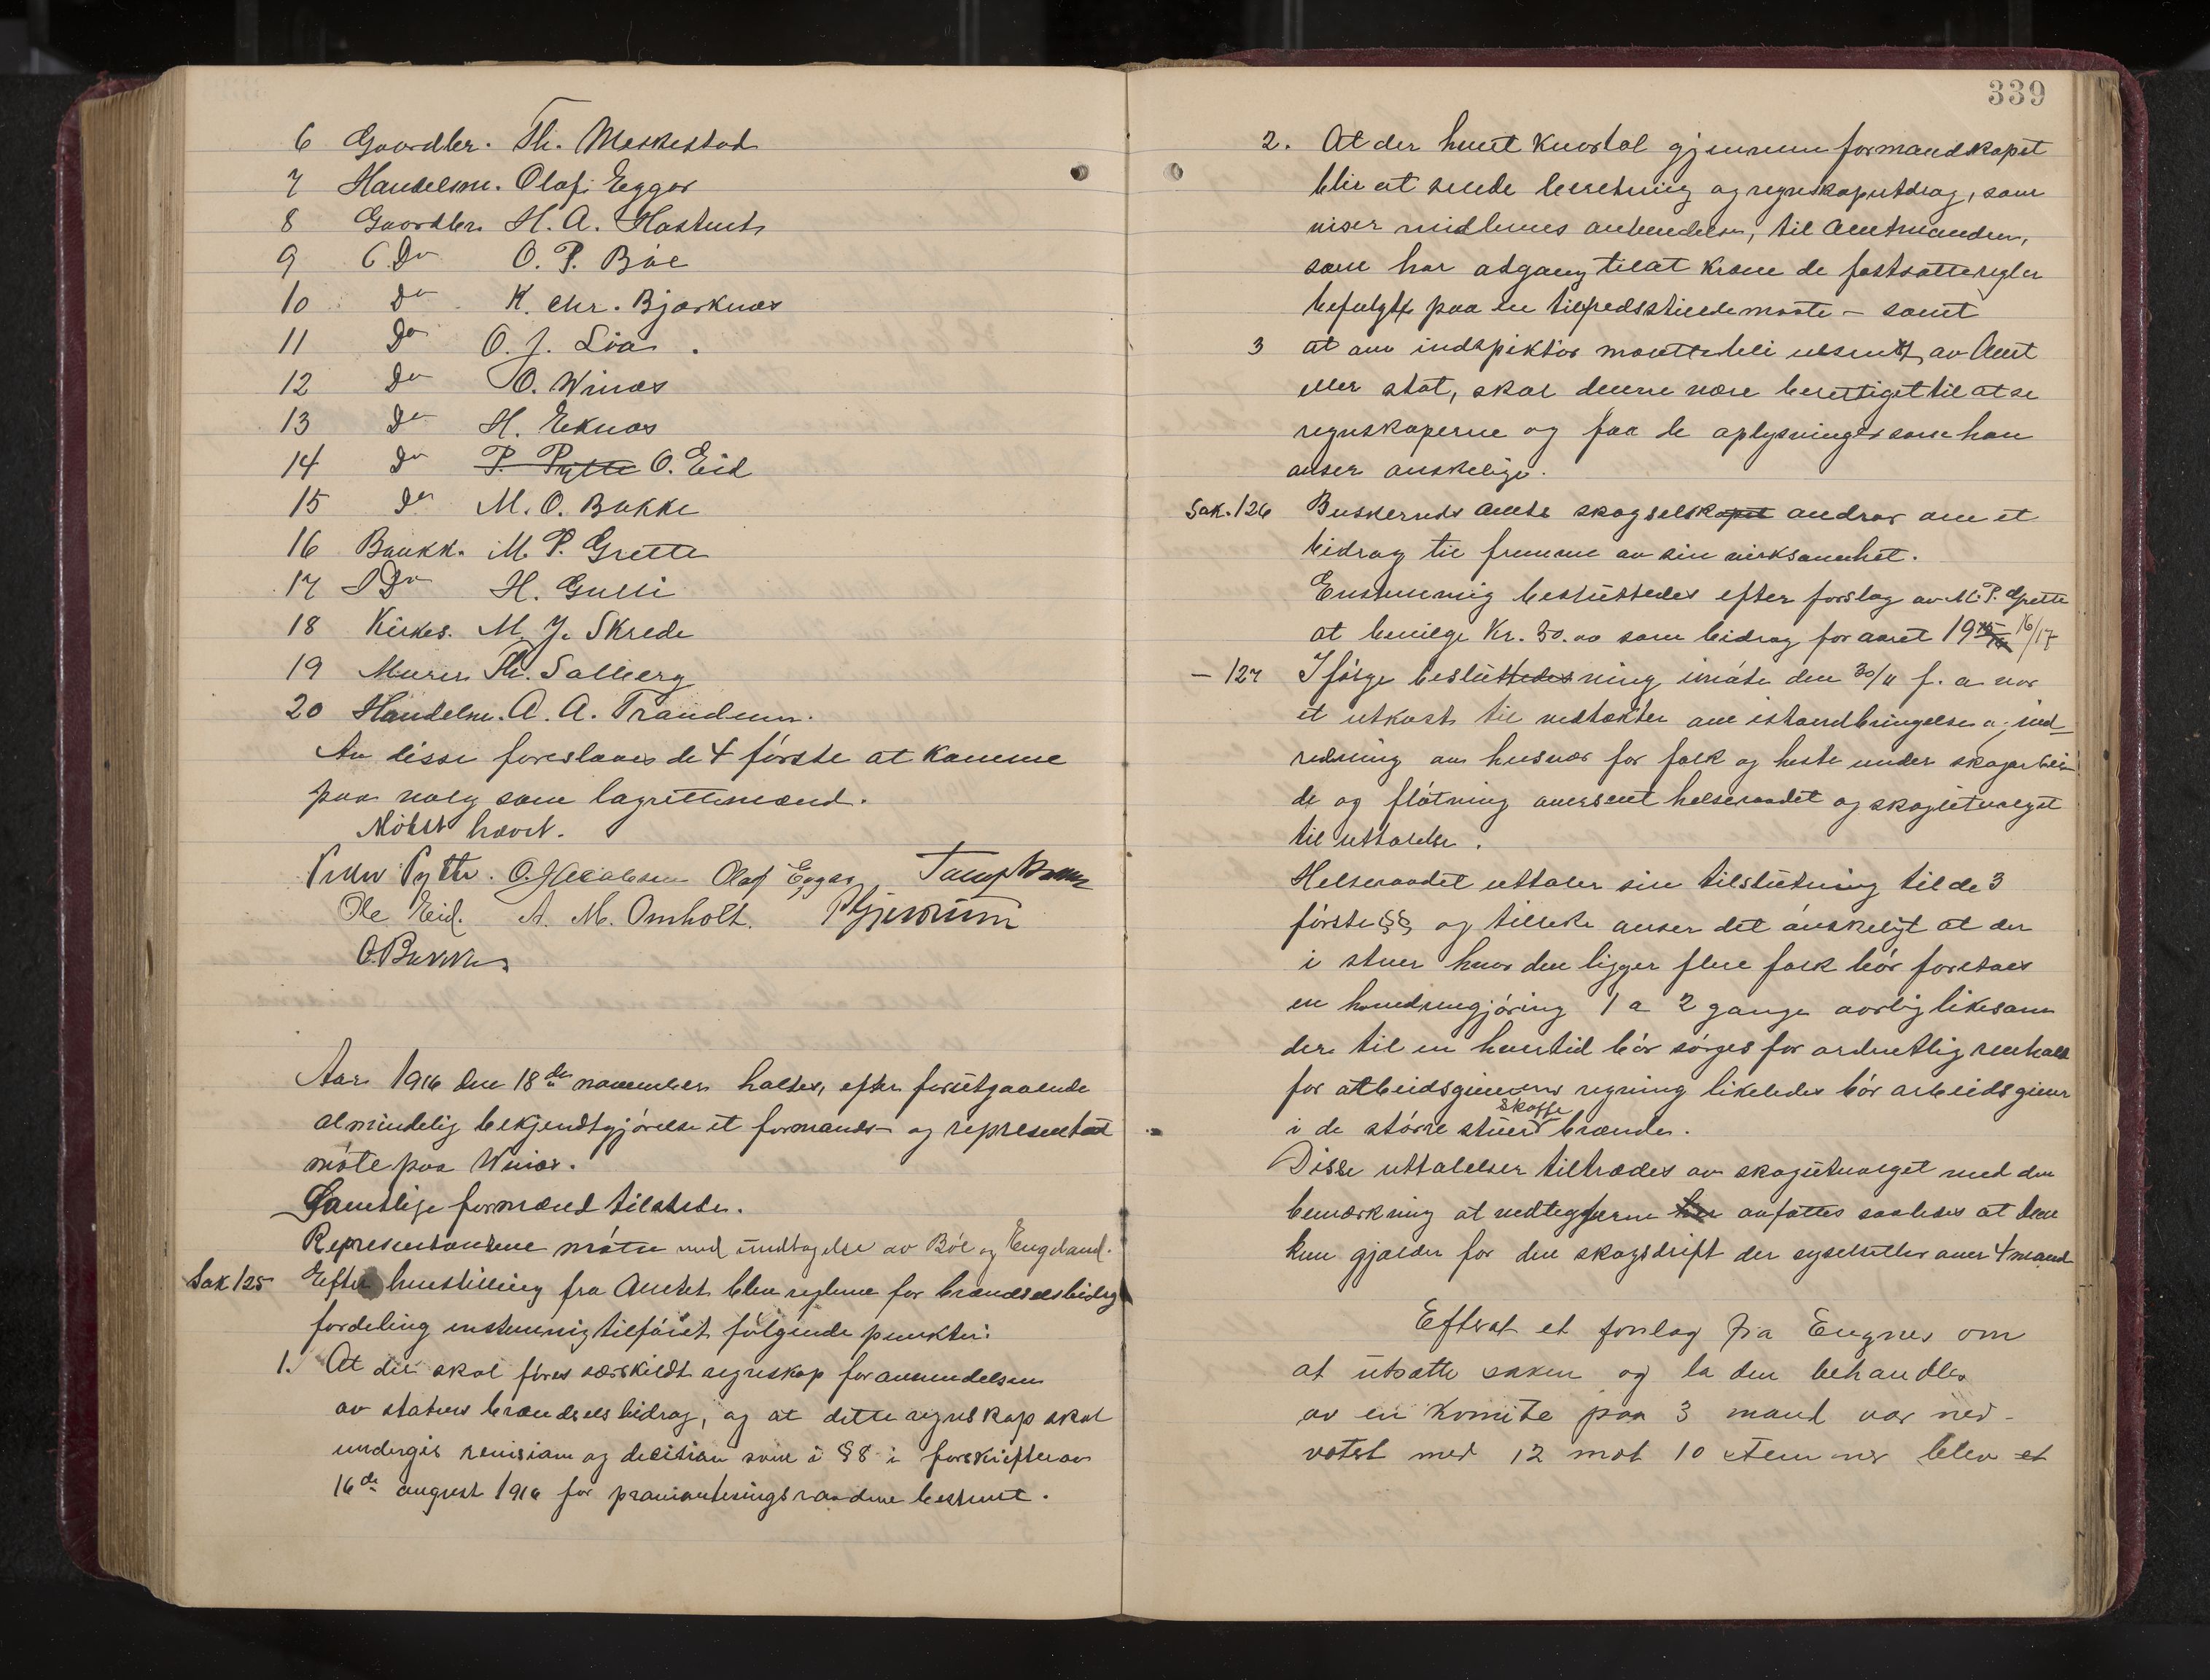 6 Gaardbr. Th. Moskestad
7 Handelsm. Olaf Eggar
8 Gaardbr. H. A. Hastvedt
9 Do O. P. Böe
10 Do K. Chr. Bjørknæs
11 Do O. J. Lia.
12 Do O. Winæs
13 Do H. Eknæs
14 Do P. Pytte O. Eid
15 Do M. O. Bakke
16 Bankk. M. P. Grette
17 Do H. Gulli
18 Kirkes. M. J. Skrede
19 Murer Th. Solberg
20 Handelsm. A. A. Trandum.
Av disse foreslaaes de 4 förste at komme
paa valg som lagrettemænd.
Mötet hævet.
Peder Pytte. O. Jacobsen Olaf Eggar
Ole Eid. A. M. Omholt. P Gjerrum
O. Bakke
Aar 1916 den 18de november holdes, efter forutgaaende
almindelig bekjendtgjörelse et formands- og representant
möte paa Winæs.
Samtlige formænd tilstede.
Representantene mötte med undtagelse av Böe og Engeland.
Sak 125 Efter henstilling fra Amtet blev reglene for brændselsbidrag
fordeling enstemmig tilföiet fölgende punkter:
1. At der skal föres særskildt regnskap for anvendelsen
av statens brændselsbidrag, og at dette regnskap skal
undergis revision og decision som i § 8 i forskrifter av
16de august 1916 for provianteringsraadene bestemt.
339
2. At der hvert kvartal gjennem formandskapet
blir at sende beretning og regnskapsutdrag, som
viser midlernes anvendelse, til Amtmanden,
som har adgang til at kræve de fastsatte regler
befulgt paa en tilfredsstillende maate – samt
3 at om indspektör maatte bli utsendt av Amt
eller stat, skal denne være berettiget til at se
regnskaperne og faa de oplysninger som han
anser önskelige.
Sak. 126 Buskeruds amts skogselskapet andrar om et
bidrag til fremme av sin virksomhet.
Enstemmig besluttedes efter forslag av M. P. Grette
at bevilge Kr. 30.00 som bidrag for aaret 1915/16 16/17
– 127 Ifölge besluttedesning i möte den 30/11 f. a. var
et utkast til vedtækter om istandbringelse og ind-
redning av husvær for folk og heste under skogarbei-
de og flötning oversent helseraadet og skogutvalget
til uttalelse.
Helseraadet uttaler sin tilslutning til de 3
förste §§ og tillike anser det önskeligt at der
i stuer hvor den ligger flere folk bör foretaes
en hovedrengjöring 1 a 2 gange aarlig likesom
der til en hvertid bör sörges for ordentlig renhold
for arbeidsgiverens regning likeledes bör arbeidsgiver
skaffe
i de större stuer brænde.
Disse uttalelser tiltrædes av skogutvalget med den
bemærkning at vedtægterne her avfattes saaledes at den
kun gjælder for den skogsdrift der sysselsetter over 4 mand
Efterat et forslag fra Engnes om
at utsætte saken og la den behandles
av en komite paa 3 mand var ned-
votert med 12 mot 10 stemmer blev et